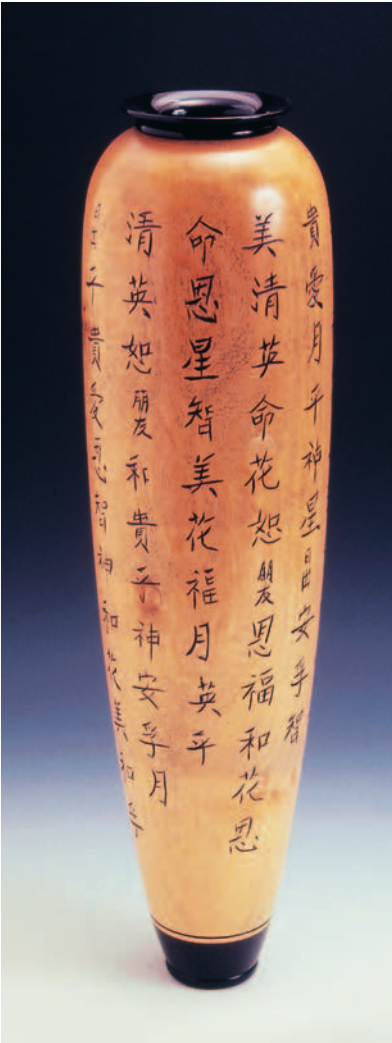 貴愛月平神星安孚智
美清英命花恕朋友恩福和花恩
命恩星智美花福月英平
清英恕朋友和貴平神安孚月
平貴愛恩智神和花美和